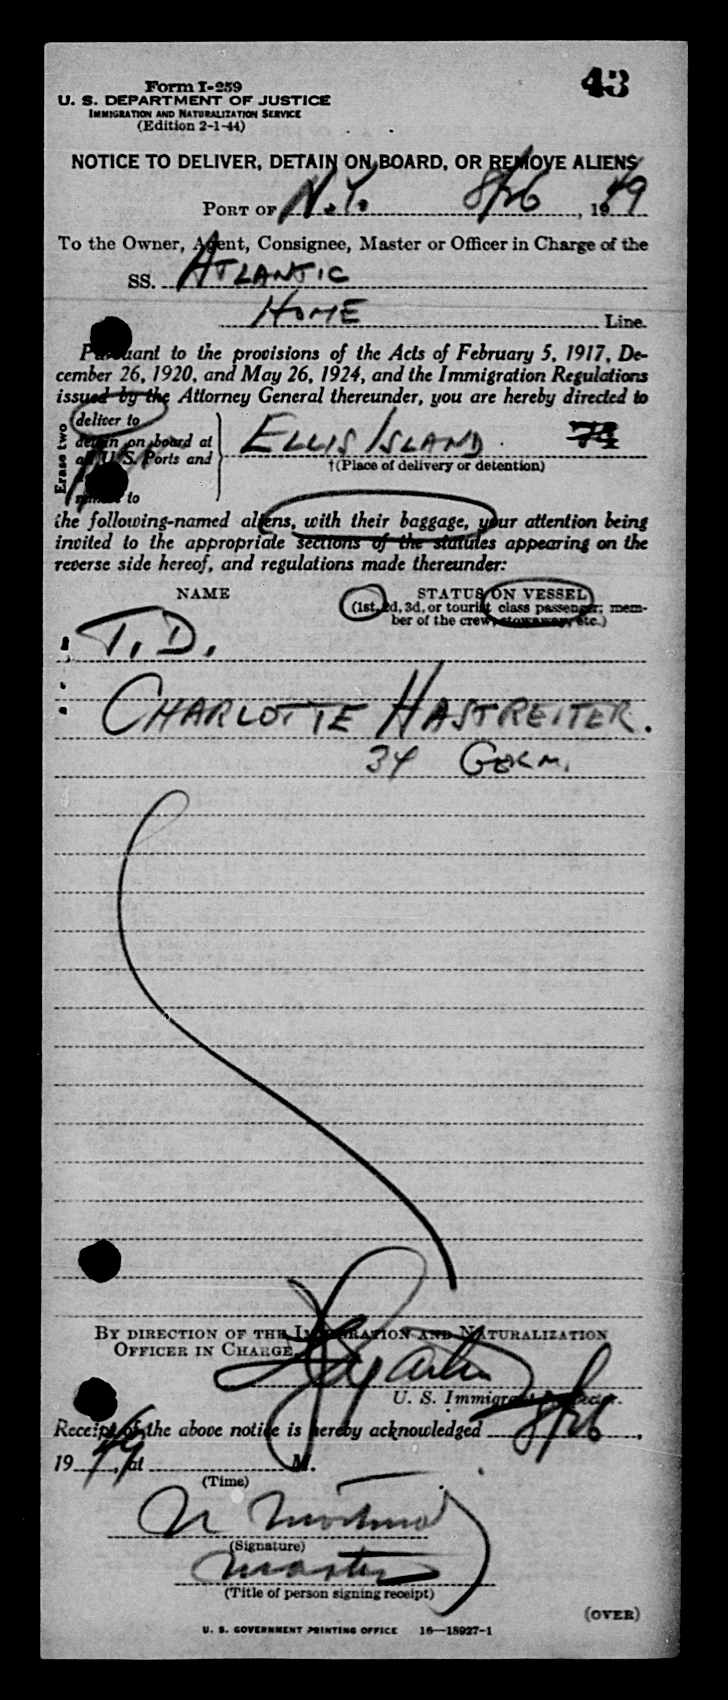 43
Form I-259
U. S. DEPARTMENT OF JUSTICE
IMMIGRATION AND NATURALIZATION SERVICE
(Edition 2-1-44)
NOTICE TO DELIVER, DETAIN ON BOARD, OR REMOVE ALIENS
PORT OF N.Y. 8/26, 1949
To the Owner, Agent, Consignee, Master or Officer in Charge of the
SS. ATLANTIC
HOME Line.
Pursuant to the provisions of the Acts of February 5, 1917, De-
cember 26, 1920, and May 26, 1924, and the Immigration Regulations
issued by the Attorney General thereunder, you are hereby directed to
Erase two
deliver to
detain on board at
all U.S. Ports and
to
ELLIS ISLAND
†(Place of delivery or detention)
the following-named aliens, with their baggage, your attention being
invited to the appropriate sections of the statutes appearing on the
reverse side hereof, and regulations made thereunder:
NAME STATUS ON VESSEL
(1st, 2d, 3d, or tourist class passenger; mem-
ber of the crew, stowaway, etc.)
T. D.
CHARLOTTE HASTREITER.
34 GERM.
BY DIRECTION OF THE IMMIGRATION AND NATURALIZATION
OFFICER IN CHARGE
U. S. Immigrant Inspector.
Receipt of the above notice is hereby acknowledged 8/26,
1949, at M.
(Time)
(Signature)
Master
(Title of person signing receipt)
(OVER)
U. S. GOVERNMENT PRINTING OFFICE 16—18927-1